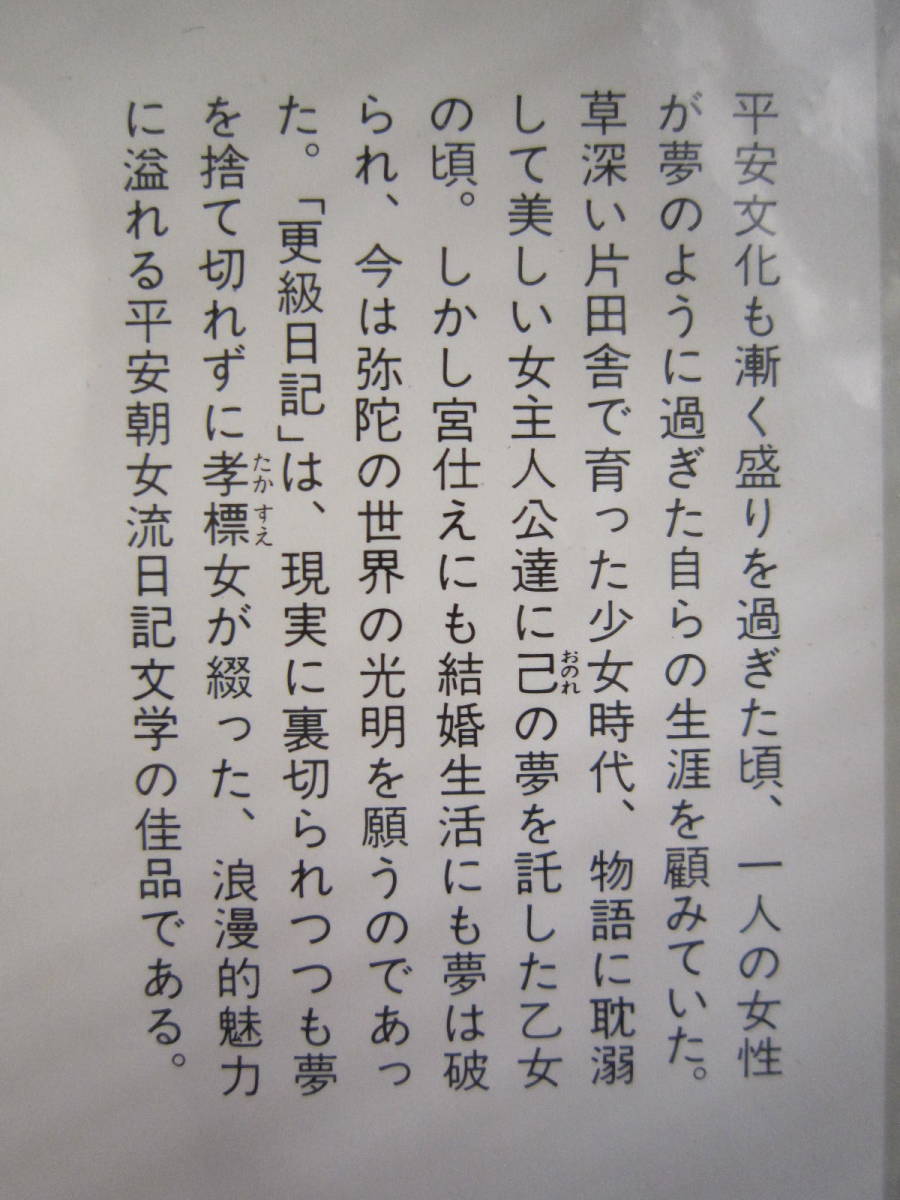 平安文化も漸く盛りを過ぎた頃、一人の女性
が夢のように過ぎた自らの生涯を顧みていた。
草深い片田舎で育った少女時代、物語に耽溺
して美しい女主人公達に己おのれの夢を託した乙女
の頃。しかし宮仕えにも結婚生活にも夢は破
られ、今は弥陀の世界の光明を願うのであっ
た。「更級日記」は、現実に裏切られつつも夢
を捨て切れずに孝標たかすえ女が綴った、浪漫的魅力
に溢れる平安朝女流日記文学の佳品である。